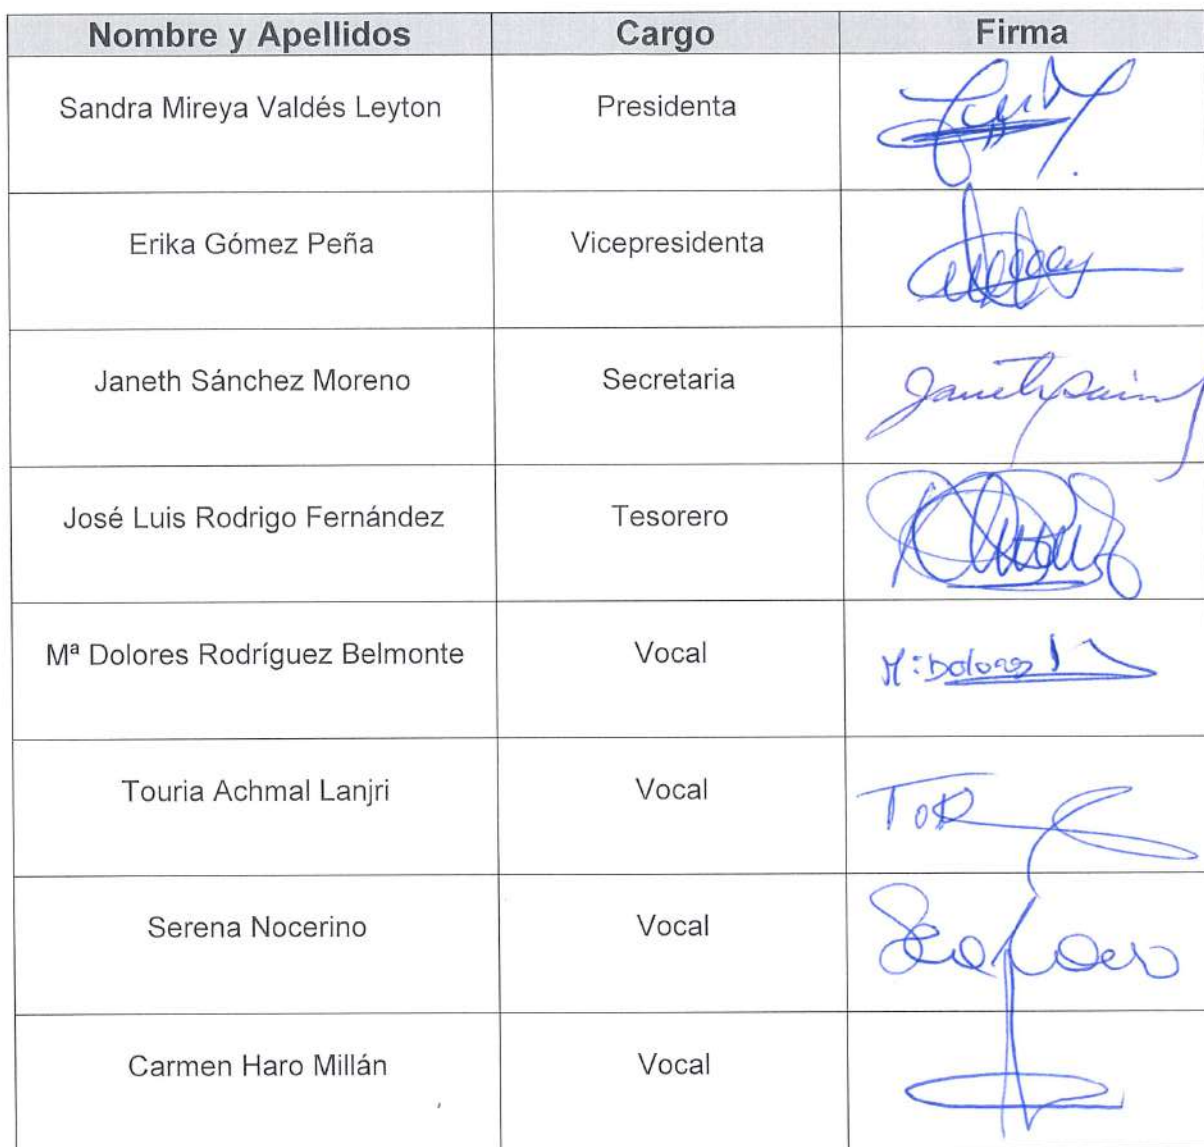 Nombre y Apellidos Cargo Firma
Sandra Mireya Valdés Leyton Presidenta
Erika Gómez Peña Vicepresidenta
Janeth Sánchez Moreno Secretaria Janeth
José Luis Rodrigo Fernández Tesorero
Mª Dolores Rodríguez Belmonte Vocal Mª Dolores
Touria Achmal Lanjri Vocal
Serena Nocerino Vocal
Carmen Haro Millán Vocal